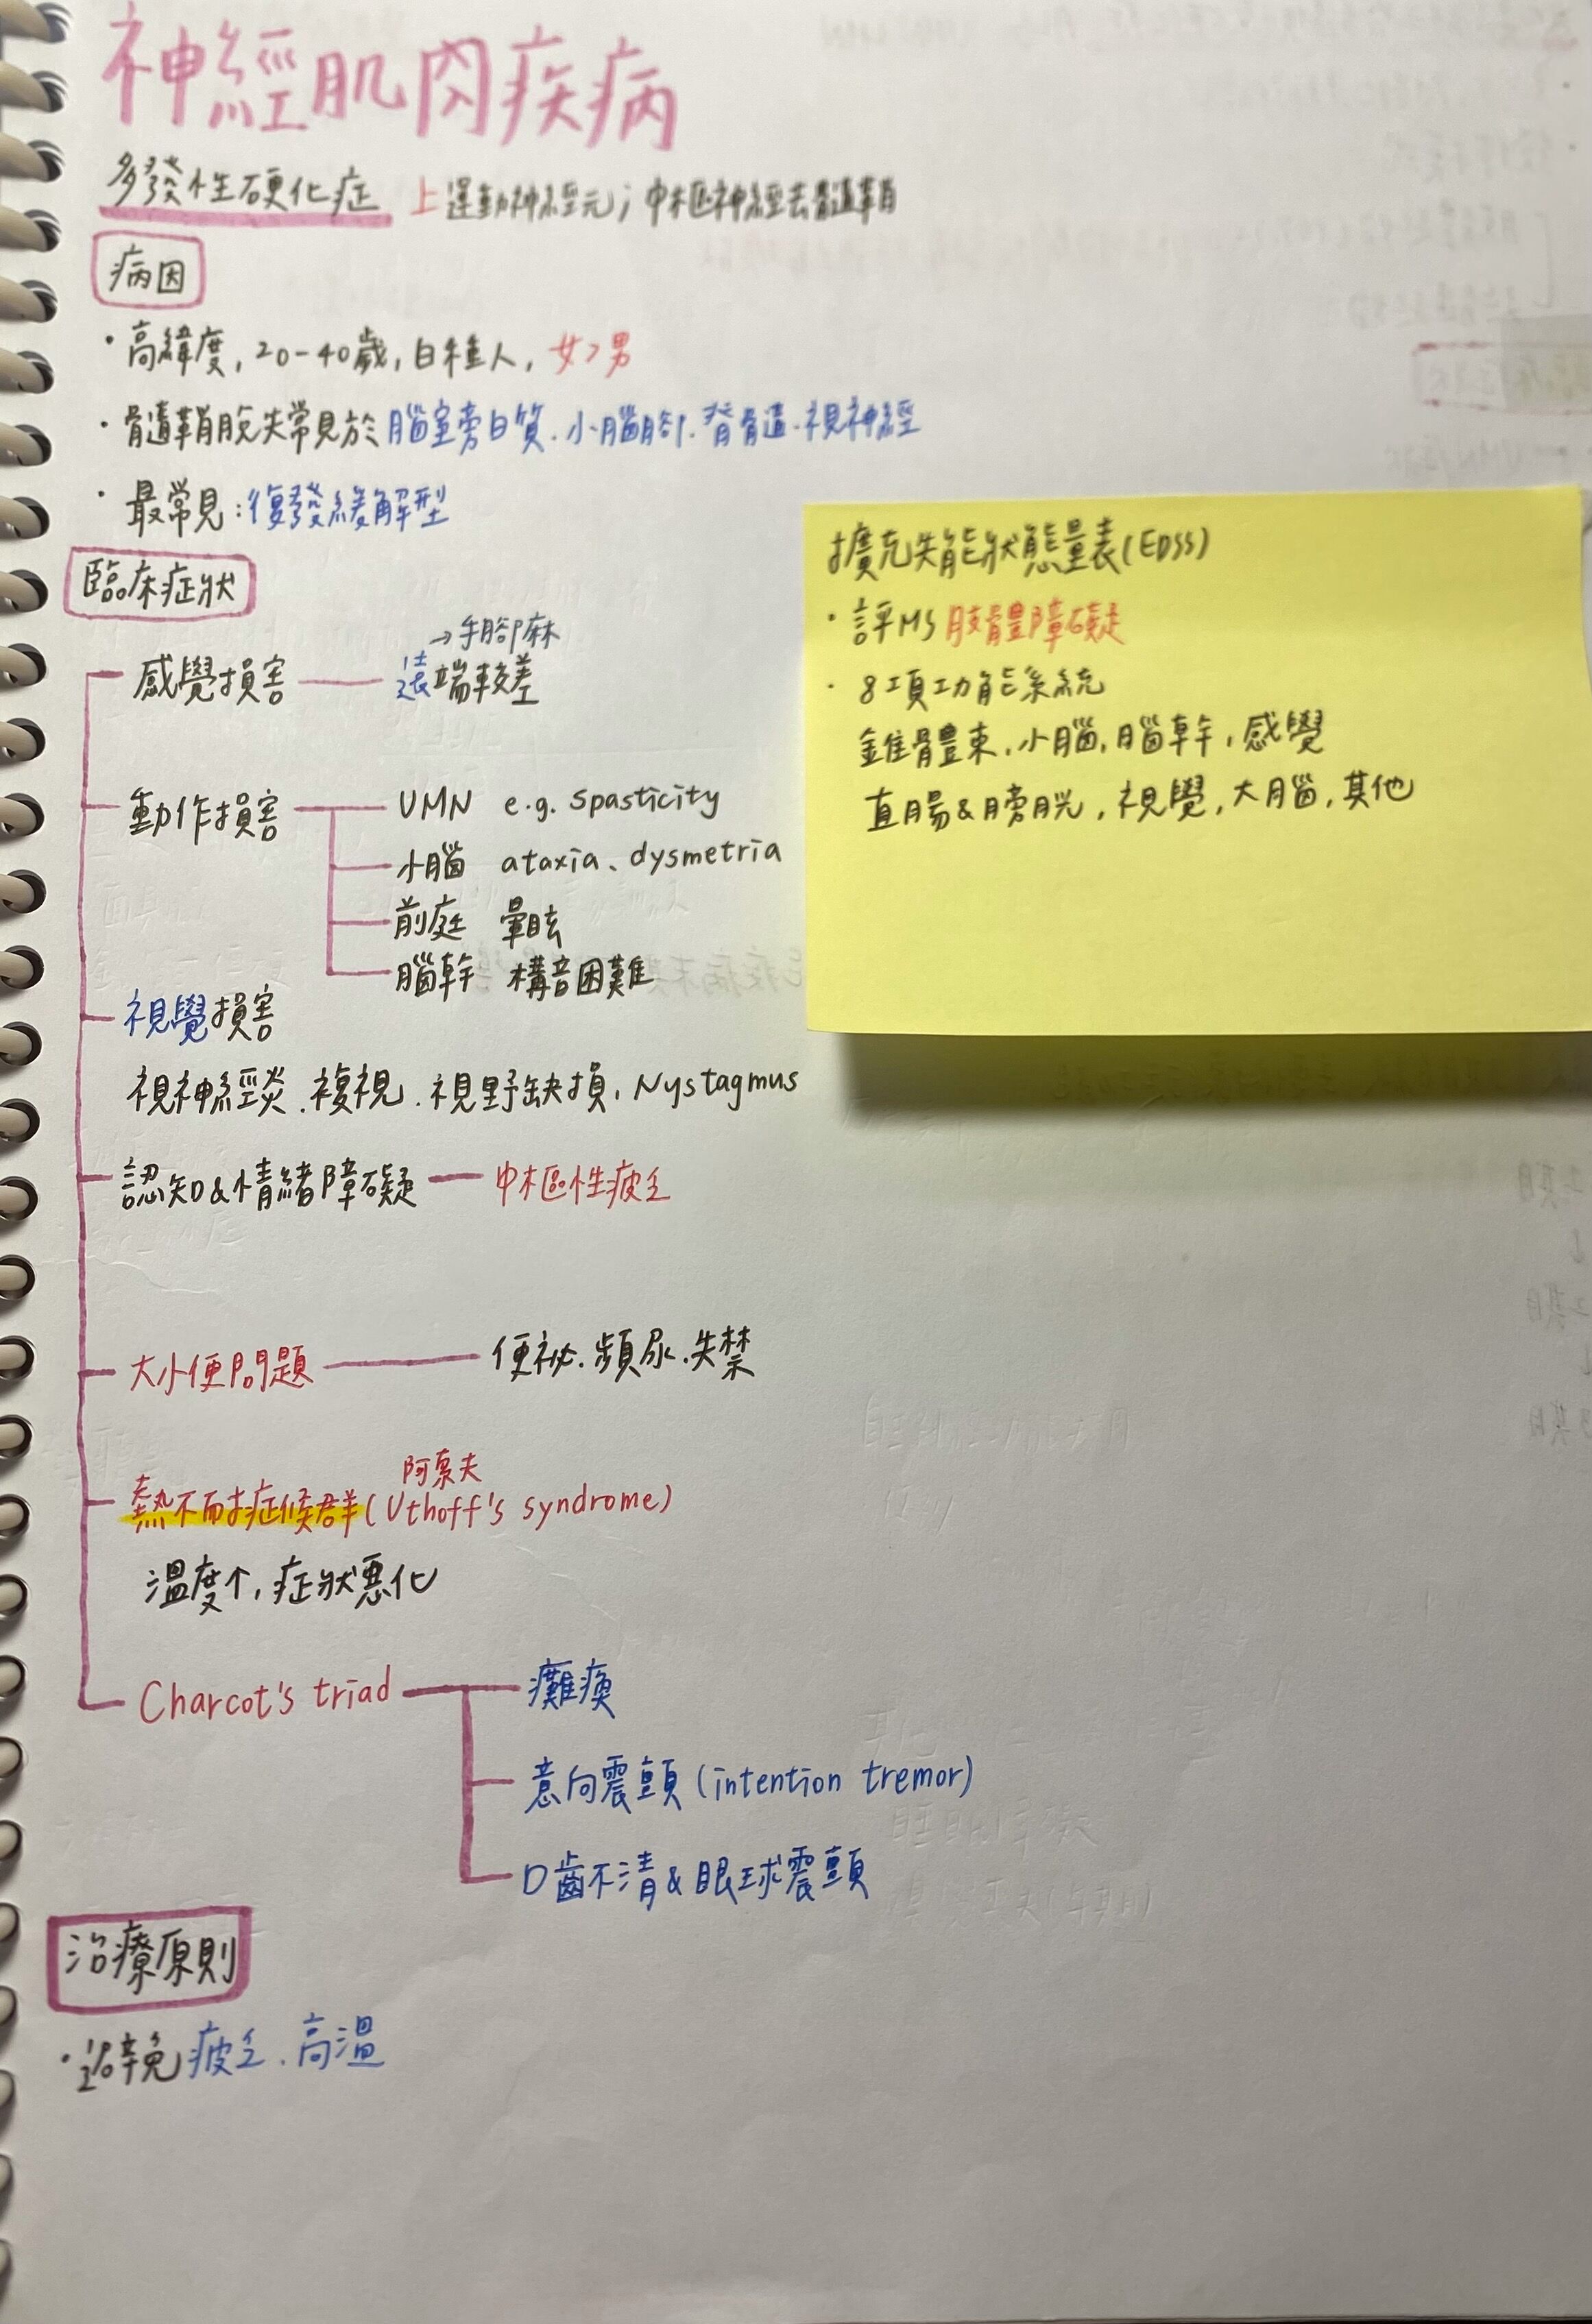 神經肌肉疾病
多發性硬化症 上運動神經元；中樞神經去髓鞘
病因
・高緯度，20-40歲，白種人，女>男
・髓鞘脫失常見於腦室旁白質、小腦腳、脊髓、視神經
・最常見：復發緩解型
臨床症狀
感覺損害 遠端較差
→手腳麻
動作損害 UMN e.g. spasticity
小腦 ataxia、dysmetria
前庭 暈眩
腦幹 構音困難
視覺損害
視神經炎、複視、視野缺損，Nystagmus
認知&情緒障礙 中樞性疲乏
大小便問題 便祕、頻尿、失禁
熱不耐症候群(Uthoff's syndrome)
溫度↑，症狀惡化
Charcot's triad 癱瘓
意向震顫(intention tremor)
口齒不清&眼球震顫
治療原則
・避免疲乏、高溫
擴充失能狀態量表(EDSS)
・評MS肢體障礙
・8項功能系統
錐體束，小腦，腦幹，感覺
直腸&膀胱，視覺，大腦，其他